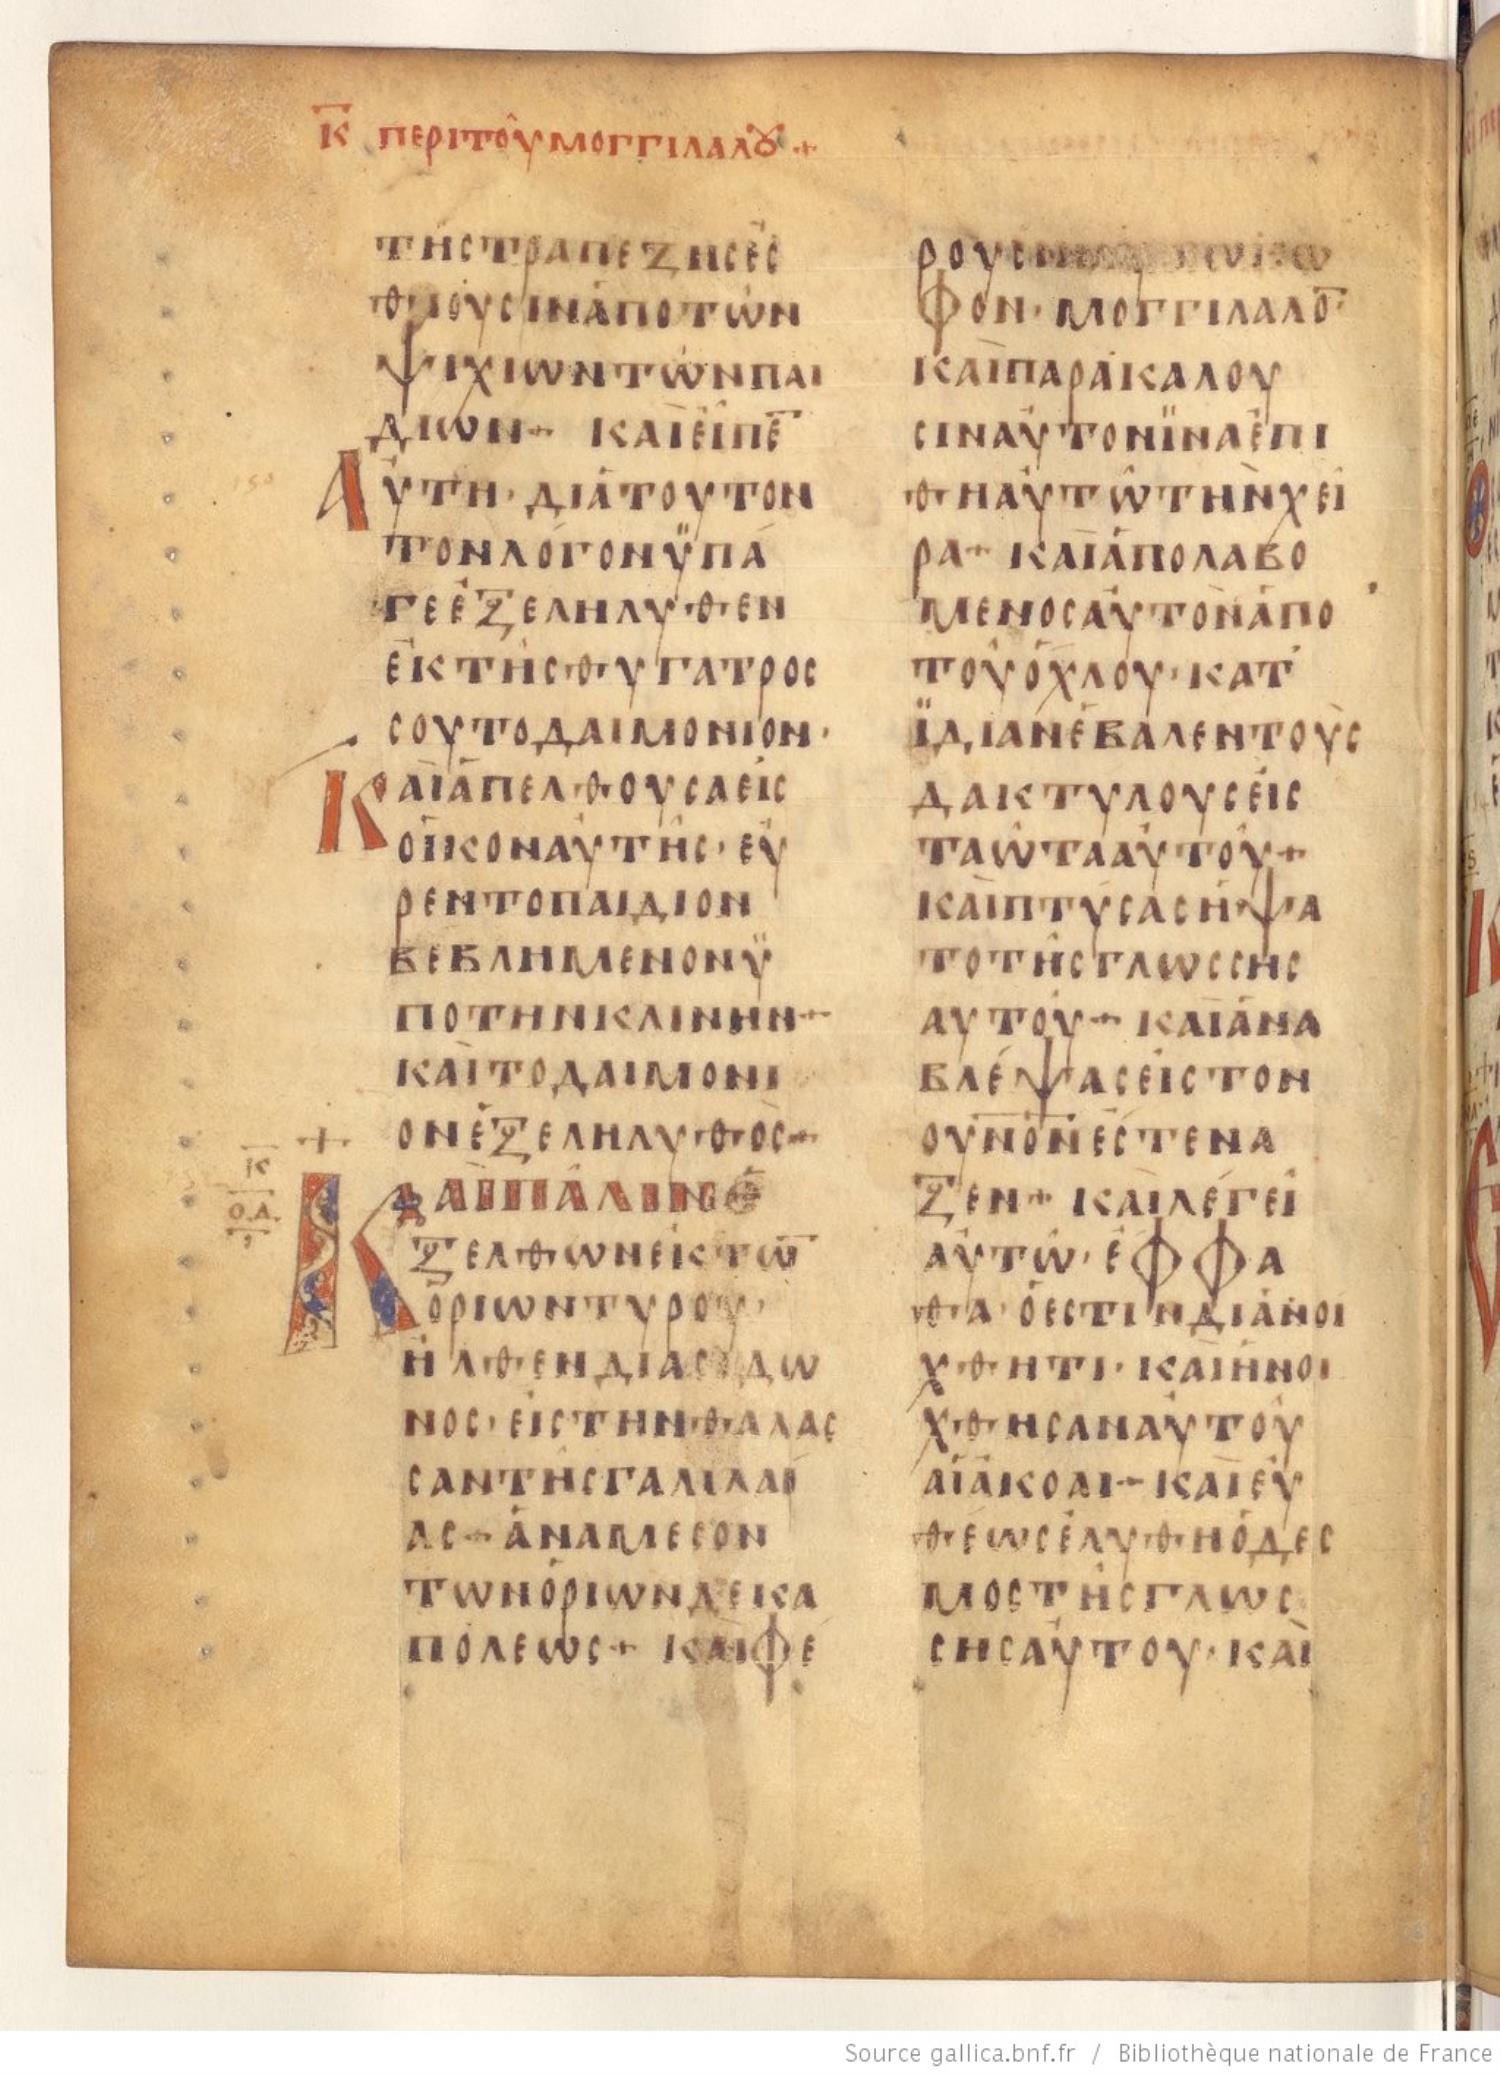 Κ̅ ΠΕΡΙ ΤΟῦ ΜΟΓΓΙΛΑΛȢ +
ΤῆΣ ΤΡΑΠΕΖΗΣ ἐΣ
ΘΙΟΥΣΙΝ ἀΠΟ ΤῶΝ
ΨΙΧΙΩΝ ΤῶΝ ΠΑΙ
ΔΙΩΝ + ΚΑῚ ΕἶΠΕ̅
ΑὐΤΗ · ΔΙΑ ΤΟΥΤΟΝ
ΤΟΝ ΛΌΓΟΝ ΫΠΑ
ΓΕ ἐΞΕΛΗΛΥΘΕΝ
ἐΚ ΤῆΣ ΘΥΓΑΤΡΟΣ
ΣΟΥ ΤΟ ΔΑΙΜΟΝΙΟΝ ·
ΚΑῚ ἀΠΕΛΘΟΥΣΑ ΕἰΣ
ΟἶΚΟΝ ΑὐΤῆΣ · Εὑ
ΡΕΝ ΤΟ ΠΑΙΔΙΟΝ
ΒΕΒΛΗΜΕΝΟΝ Ϋ
ΠΟ ΤΗΝ ΚΛΙΝΗΝ +
ΚΑῚ ΤΟ ΔΑΙΜΟΝΙ
ΟΝ ἐΞΕΛΗΛΥΘΟΣ +
Κ̅
ΟΔ
ΚΑῚ ΠΑΛΙΝ Ε
ΞΕΛΘΩΝ ἐΚ ΤΩ̅
ὁΡΙΩΝ ΤΥΡΟΥ ·
ἦΛΘΕΝ ΔΙΑ ΣΙΔΩ
ΝΟΣ · ΕἰΣ ΤΗΝ ΘΑΛΑΣ
ΣΑΝ ΤῆΣ ΓΑΛΙΛΑΙ
ΑΣ + ἀΝΑΜΕΣΟΝ
ΤΩΝ ὁΡΙΩΝ ΔΕΚΑ
ΠΟΛΕΩΣ + ΚΑῚ ΦΕ
ΡΟΥΣΙΝ ΚΩ
ΦΟΝ · ΜΟΓΓΙΛΑΛΟ̅ ·
ΚΑῚ ΠΑΡΑΚΑΛΟΥ
ΣΙΝ ΑὐΤΟΝ ΪΝΑ ἐΠΙ
ΘΗ ΑὐΤῶ ΤΗΝ ΧΕΙ
ΡΑ + ΚΑῚ ἀΠΟΛΑΒΟ
ΜΕΝΟΣ ΑὐΤῸΝ ἀΠΟ
ΤΟῦ ὄΧΛΟΥ · ΚΑΤ'
ΪΔΙΑΝ ἔΒΑΛΕΝ ΤΟῪΣ
ΔΑΚΤΥΛΟΥΣ ΕἰΣ
ΤΑ ὦΤΑ ΑὐΤΟῦ +
ΚΑῚ ΠΤΥΣΑΣ ἥΨΑ
ΤΟ ΤῆΣ ΓΛΩΣΣΗΣ
ΑΥΤΟῦ + ΚΑῚ ἀΝΑ
ΒΛΕΨΑΣ ΕἰΣ ΤΟΝ
ΟΥ̅Ν̅Ο̅Ν̅ ἐΣΤΕΝΑ
ΞΕΝ + ΚΑῚ ΛΕΓΕΙ
ΑὐΤῶ · ΕΦΦΑ
ΘΑ · ὅ ΕΣΤΙΝ ΔΙΑΝΟΙ
ΧΘΗΤΙ · ΚΑῚ ἠΝΟΙ
ΧΘΗΣΑΝ ΑὐΤΟῦ
ΑἱΑΚΟΑΙ + ΚΑῚ Εὐ
ΘΕΩΣ ἐΛΥΘΗ ὁ ΔΕΣ
ΜΟΣ ΤῆΣ ΓΛΩΣ
ΣΗΣ ΑὐΤΟΥ · ΚΑῚ
Source gallica.bnf.fr / Bibliothèque nationale de France